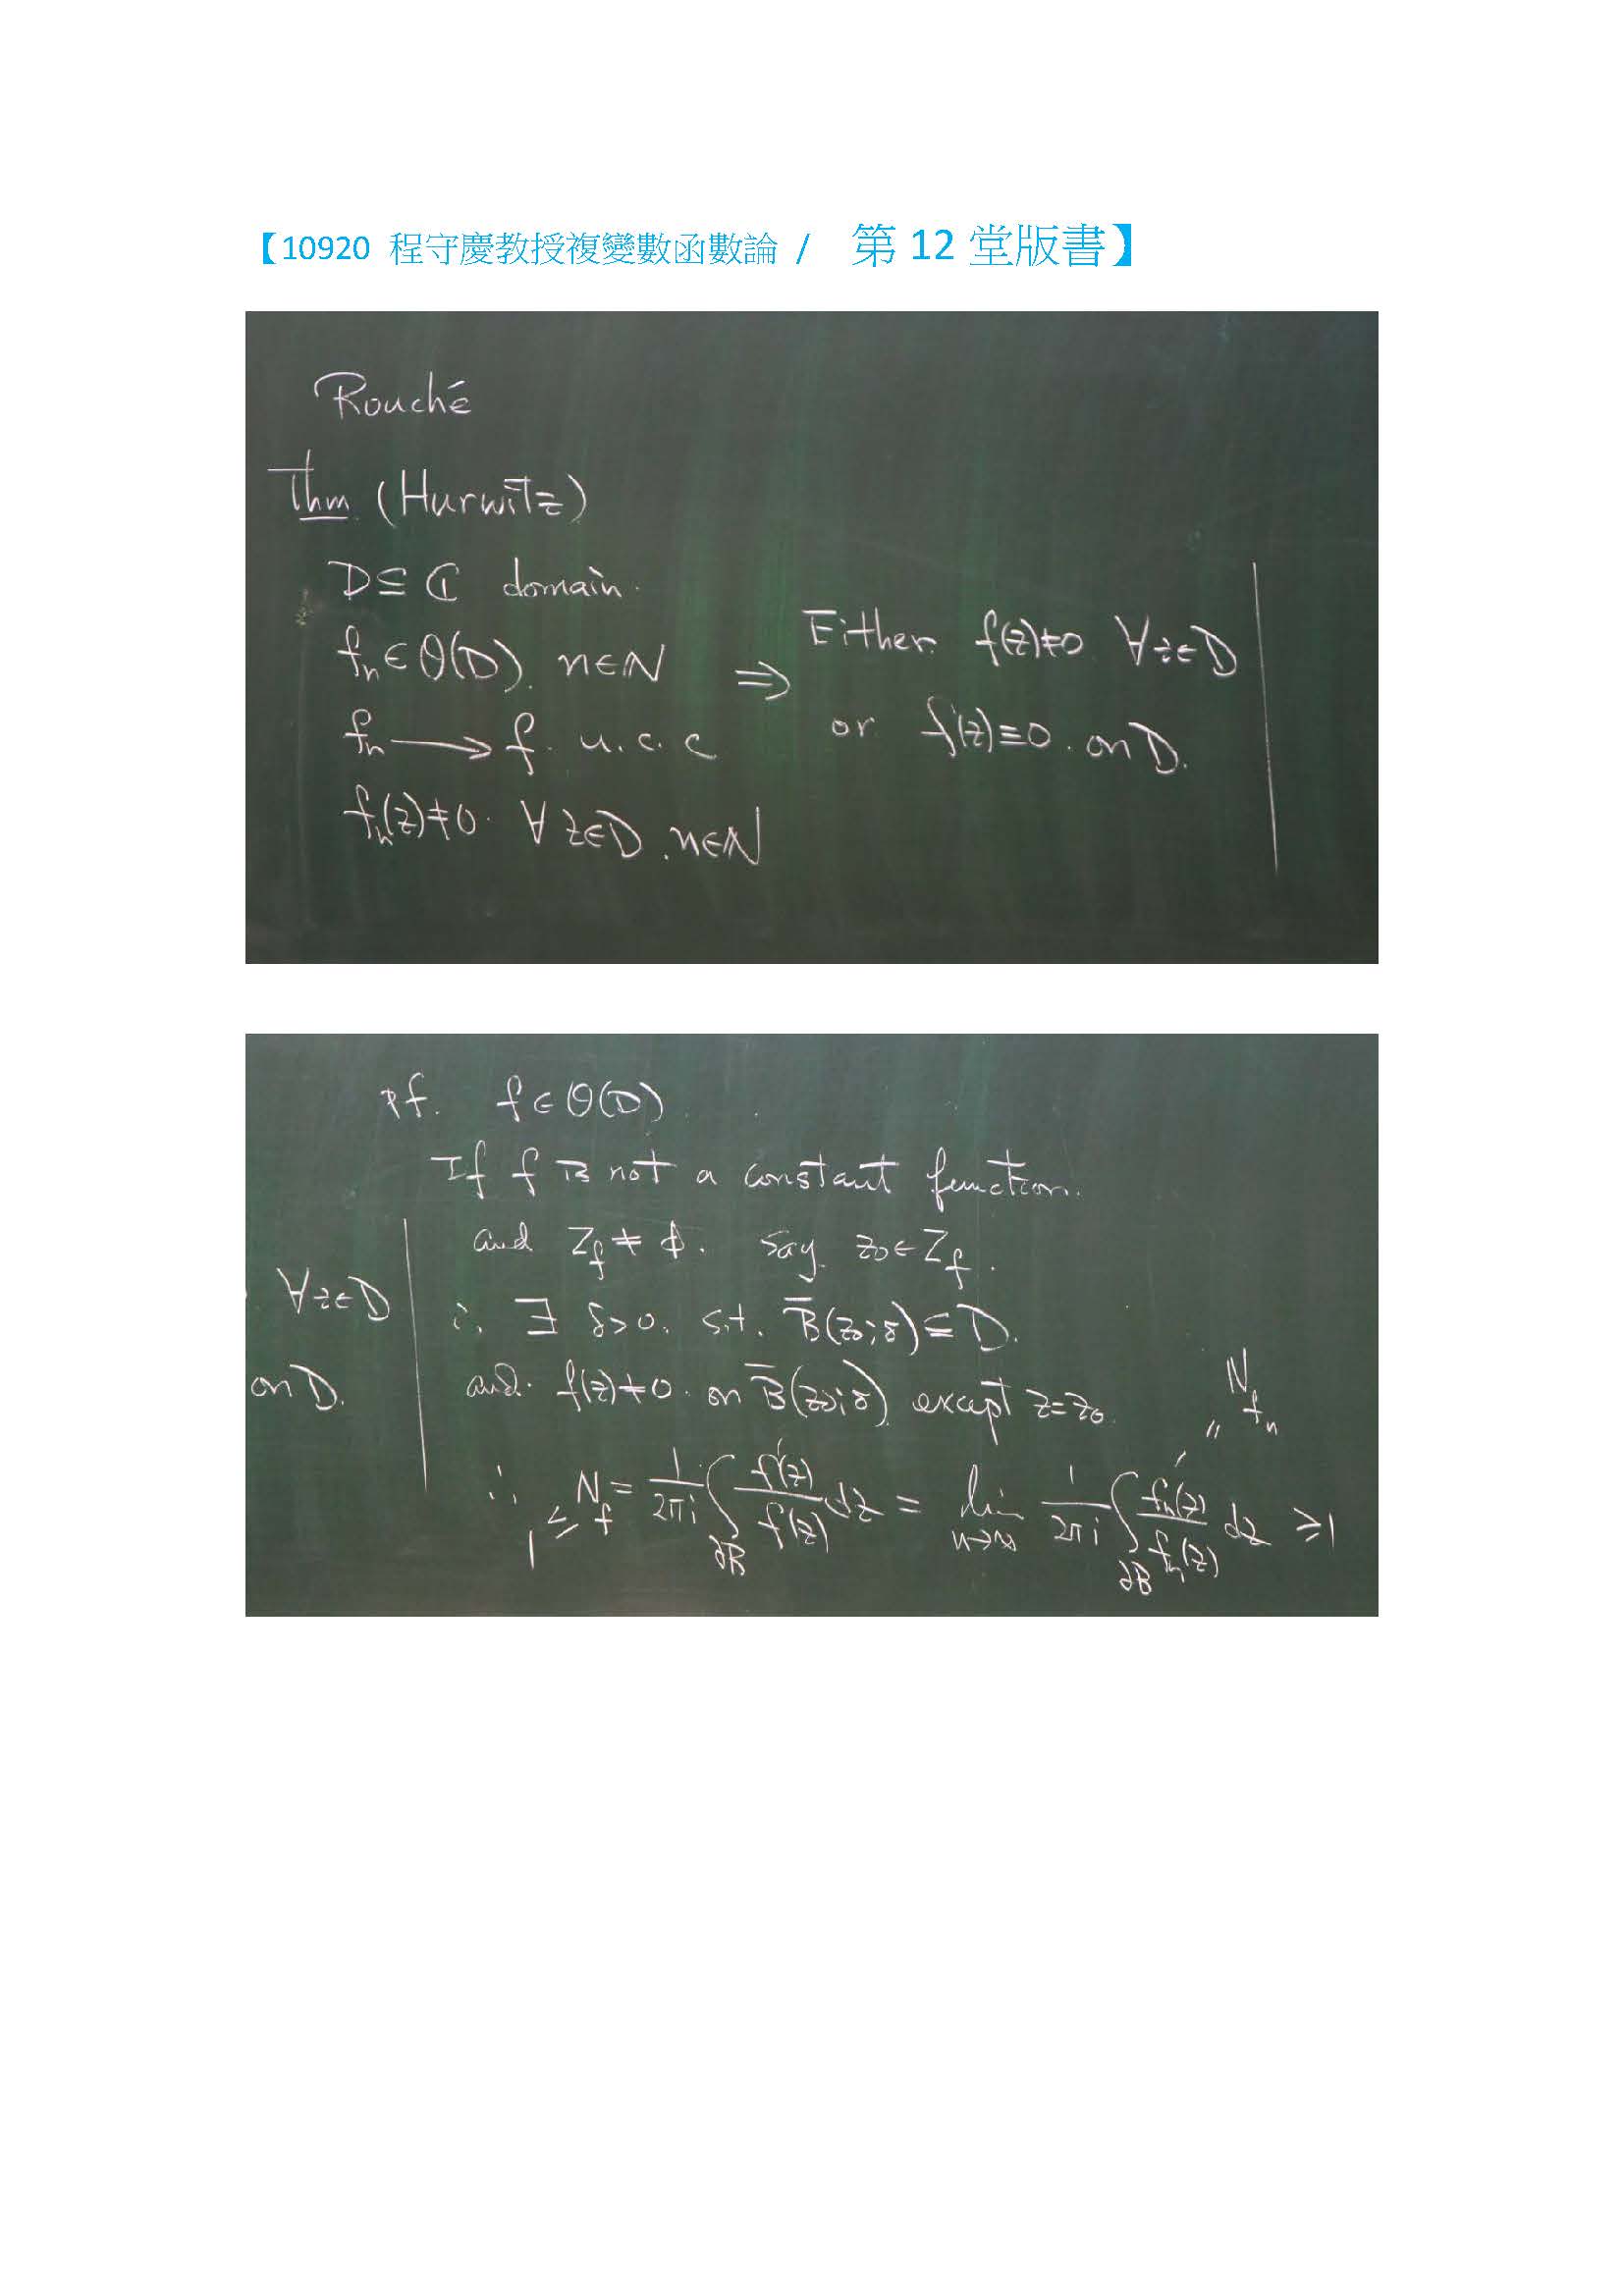 【10920 程守慶教授複變數函數論 / 第 12 堂版書】
Rouché
Thm (Hurwitz)
D ⊆ ℂ domain.
fₙ ∈ O(D). n∈ℕ ⇒ Either f(z)≠0 ∀z∈D
fₙ ⟶ f. u.c.c or f(z)≡0. on D.
fₙ(z)≠0. ∀z∈D. n∈ℕ
pf. f∈O(D).
If f is not a constant function.
and Z_f ≠ φ. say z₀∈Z_f.
∀z∈D ∴ ∃ δ>0. s.t. B̅(z₀;δ)⊆D.
on D. and f(z)≠0. on B̅(z₀;δ) except z=z₀.
N_{fₙ}
"
∴ 1 ≤ N_f = \frac{1}{2πi} ∫_{∂B} \frac{f'(z)}{f(z)} dz = lim_{n→∞} \frac{1}{2πi} ∫_{∂B} \frac{fₙ'(z)}{fₙ(z)} dz ≥1